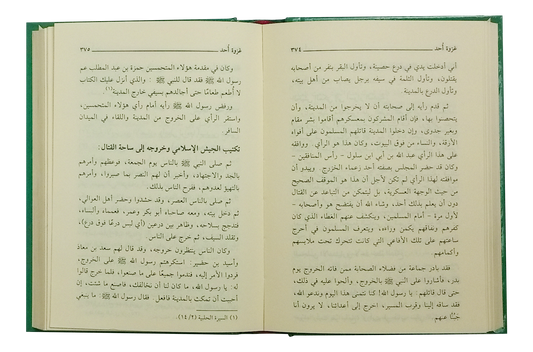 غزوة أحد ٣٧٤
أني أدخلت يدي في درع حصينة، وتأول البقر بنفر من أصحابه
يقتلون، وتأول الثلمة في سيفه برجل يصاب من أهل بيته،
وتأول الدرع بالمدينة
ثم قدم رأيه إلى صحابته أن لا يخرجوا من المدينة، وأن
يتحصنوا بها، فإن أقام المشركون بمعسكرهم أقاموا بشر مقام
وبغير جدوى، وإن دخلوا المدينة قاتلهم المسلمون على أفواه
الأزقة، والنساء من فوق البيوت، وكان هذا هو الرأي. ووافقه
على هذا الرأي عبد الله بن أبي ابن سلول – رأس المنافقين –
وكان قد حضر المجلس بصفته أحد زعماء الخزرج. ويبدو أن
موافقته لهذا الرأي لم تكن لأجل أن هذا هو الموقف الصحيح
من حيث الوجهة العسكرية، بل ليتمكن من التباعد عن القتال
دون أن يعلم بذلك أحد، وشاء الله أن يفتضح هو وأصحابه –
لأول مرة – أمام المسلمين، وينكشف عنهم الغطاء الذي كان
كفرهم ونفاقهم يكمن وراءه، ويتعرف المسلمون في أحرج
ساعتهم على تلك الأفاعي التي كانت تتحرك تحت ملابسهم
وأكمامهم
فقد بادر جماعة من فضلاء الصحابة ممن فاته الخروج يوم
بدر، فأشاروا على النبي ﷺ بالخروج، وألحوا عليه في ذلك،
حتى قال قائلهم: يا رسول الله! كنا نتمنى هذا اليوم وندعو الله،
فقد ساقه إلينا وقرب المسير، اخرج إلى أعدائنا، لا يرون أنا
جبنّا عنهم
غزوة أحد ٣٧٥
وكان في مقدمة هؤلاء المتحمسين حمزة بن عبد المطلب عم
رسول الله ﷺ فقد قال للنبي ﷺ: والذي أنزل عليك الكتاب
لا أطعم طعامًا حتى أجالدهم بسيفي خارج المدينة(١)
ورفض رسول الله ﷺ رأيه أمام رأي هؤلاء المتحمسين،
واستقر الرأي على الخروج من المدينة واللقاء في الميدان
السافر.
تكتيب الجيش الإسلامي وخروجه إلى ساحة القتال:
ثم صلى النبي ﷺ بالناس يوم الجمعة، فوعظهم وأمرهم
بالجد والاجتهاد، وأخبر أن لهم النصر بما صبروا، وأمرهم
بالتهيؤ لعدوهم، ففرح الناس بذلك.
ثم صلى بالناس العصر، وقد حشدوا وحضر أهل العوالي،
ثم دخل بيته، ومعه صاحباه أبو بكر وعمر، فعمماه وألبساه،
فتدجج بسلاحه، وظاهر بين درعين (أي لبس درعًا فوق درع)
وتقلد السيف، ثم خرج على الناس.
وكان الناس ينتظرون خروجه، وقد قال لهم سعد بن معاذ
وأسيد بن حضير: استكرهتم رسول الله ﷺ على الخروج،
فردوا الأمر إليه، فندموا جميعًا على ما صنعوا، فلما خرج قالوا
له: يا رسول الله، ما كان لنا أن نخالفك، فاصنع ما شئت، إن
أحببت أن تمكث بالمدينة فافعل. فقال رسول الله ﷺ: ما ينبغي
(١) السيرة الحلبية (٢/ ١٤).